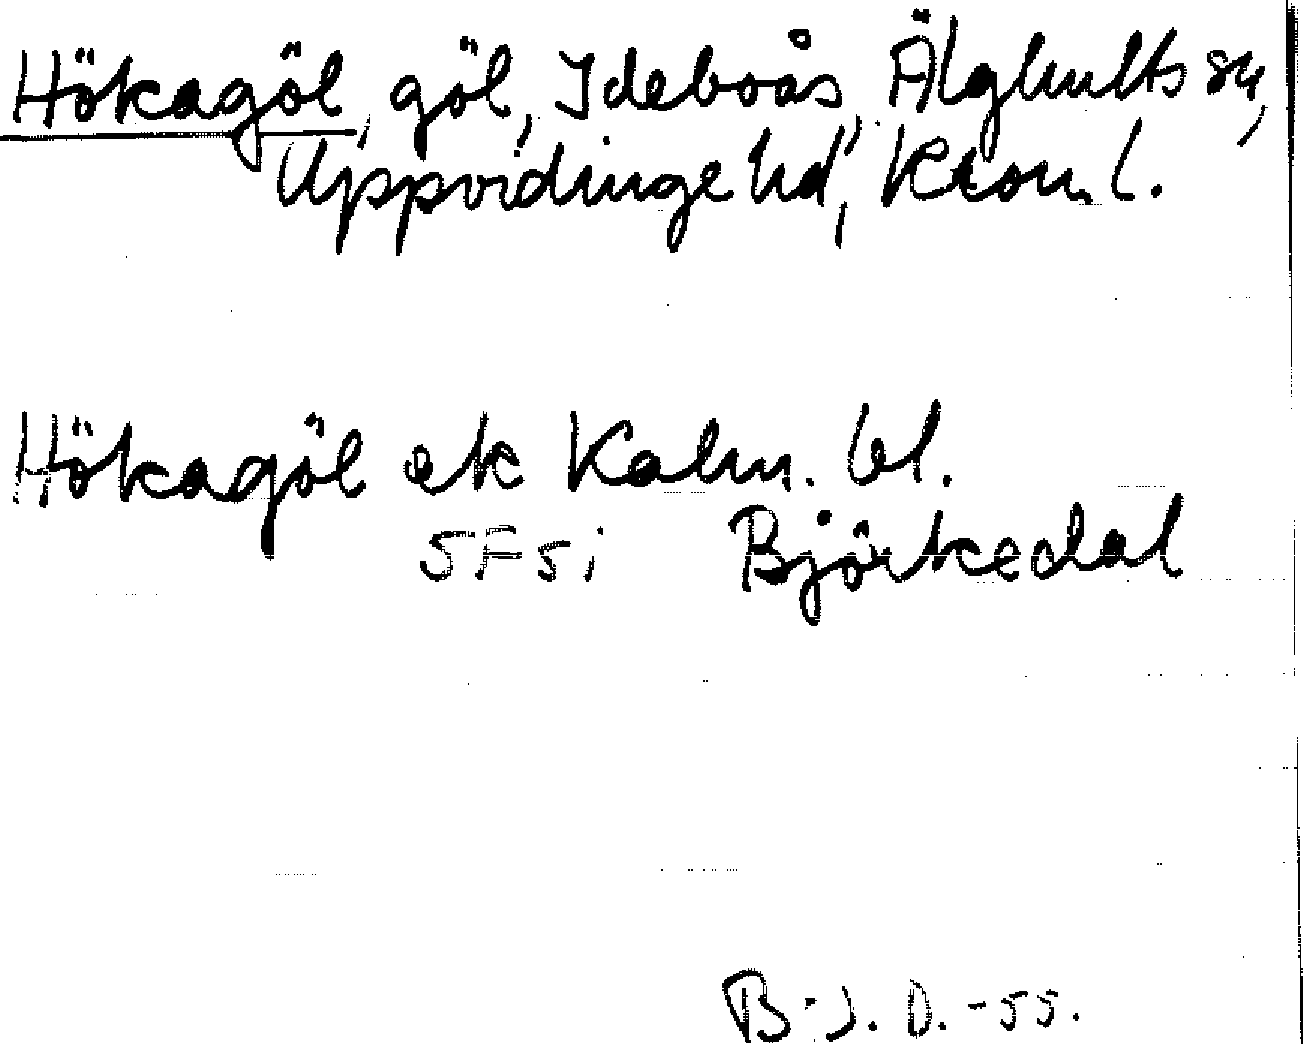 Hökagöl, göl, Ideboås, Älghults sn,
Uppvidinge hd, Kron. l.
Hökagöl ek Kalm. bl.
5F5i Björkedal
B.J. D. -55.